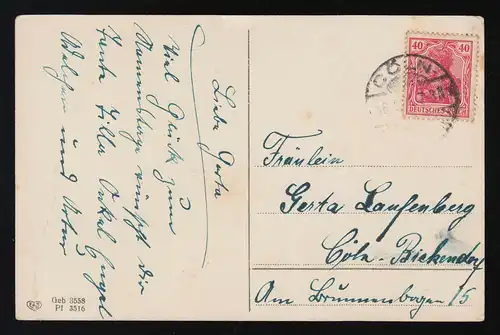 Liebe Gerta
Viel Glück zum
Namenstage wünscht dir
Tante Zilla Onkel
und Artur
40 40
DEUTSCHES
CÖLN
Fräulein
Gerta Laufenberg
Cöln-Bickendorf
Am Brunnenbogen 15
Geb 3558
Pf 3516